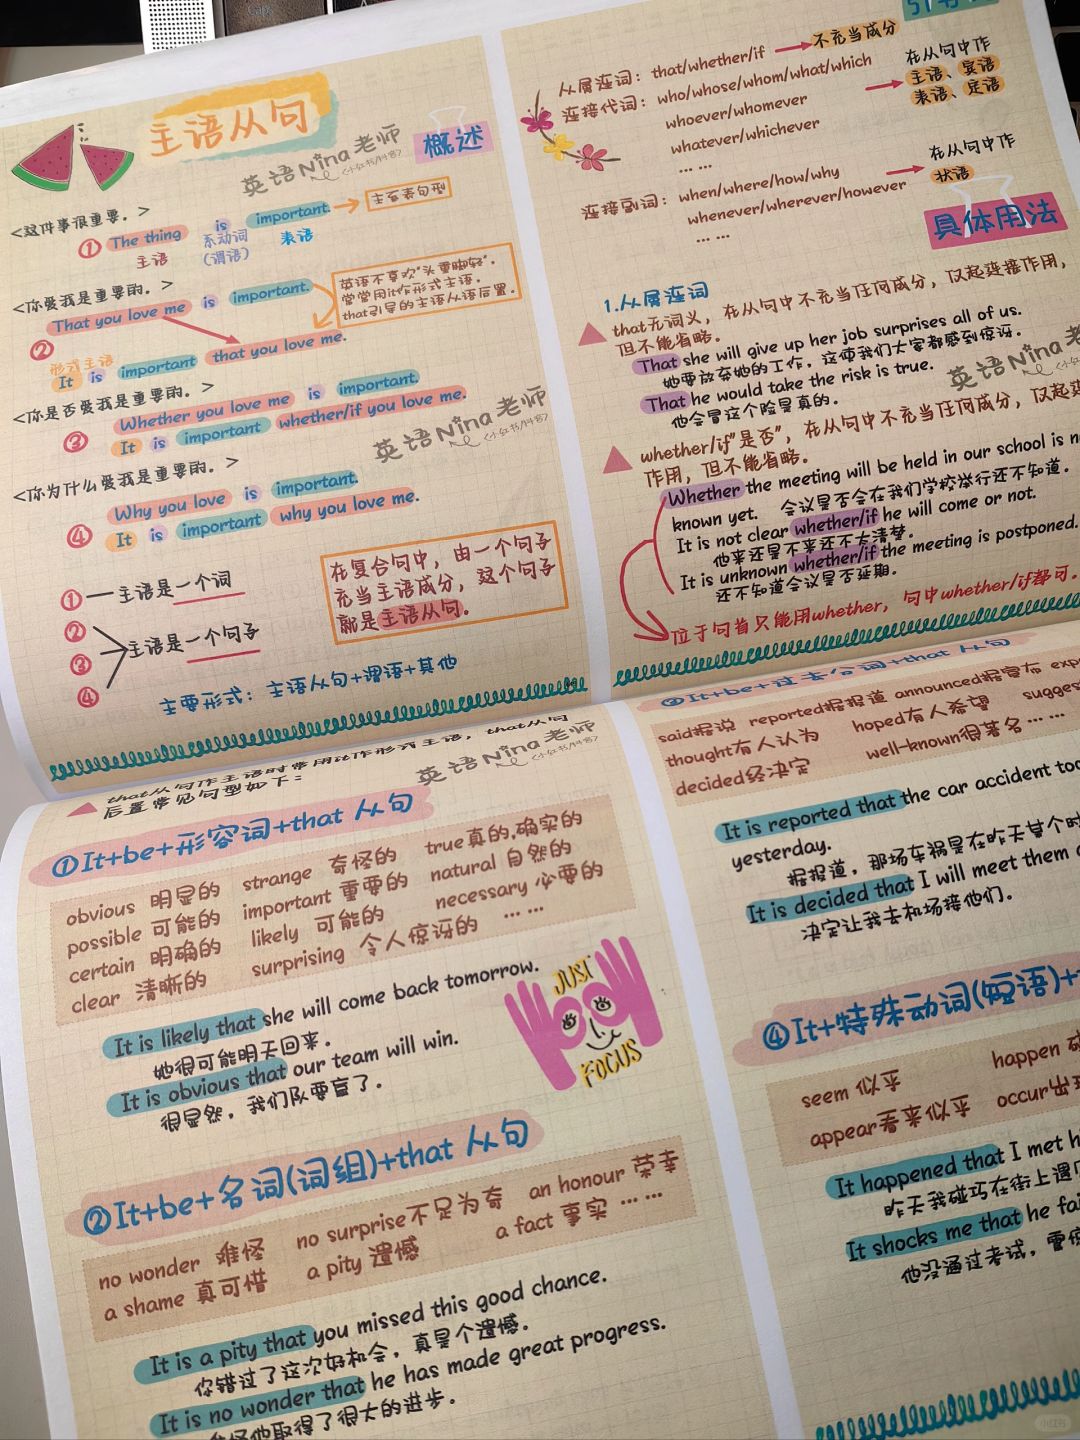 主语从句
英语Nina老师
(小红书/抖音)
概述
<这件事很重要。>
① The thing is important. → 主系表句型
主语 系动词 表语
(谓语)
<你爱我是重要的。>
② That you love me is important.
英语不喜欢"头重脚轻"，
常常用it作形式主语，
that引导的主语从语后置。
形式主语
It is important that you love me.
<你是否爱我是重要的。>
③ Whether you love me is important.
It is important whether/if you love me.
英语Nina老师
(小红书/抖音)
<你为什么爱我是重要的。>
④ Why you love is important.
It is important why you love me.
① 主语是一个词
②
③ 主语是一个句子
④
在复合句中，由一个句子
充当主语成分，这个句子
就是主语从句。
主要形式：主语从句+谓语+其他
从属连词：that/whether/if → 不充当成分
连接代词：who/whose/whom/what/which
whoever/whomever
whatever/whichever
... ...
在从句中作
主语、宾语
表语、定语
连接副词：when/where/how/why
whenever/wherever/however
... ...
在从句中作
状语
具体用法
1.从属连词
that无词义，在从句中不充当任何成分，仅起连接作用，
但不能省略。
That she will give up her job surprises all of us.
她要放弃她的工作，这使我们大家都感到惊讶。
That he would take the risk is true.
他会冒这个险是真的。
英语Nina老
whether/if"是否"，在从句中不充当任何成分，仅起
作用，但不能省略。
Whether the meeting will be held in our school is
known yet. 会议是否会在我们学校举行还不知道。
It is not clear whether/if he will come or not.
他来还是不来还不太清楚。
It is unknown whether/if the meeting is postponed.
还不知道会议是否延期。
位于句首只能用whether，句中whether/if都可。
that从句作主语时常用it作形式主语，that从句
后置常见句型如下：
英语Nina老师
(小红书/抖音)
①It+be+形容词+that 从句
obvious 明显的 strange 奇怪的 true真的,确实的
possible 可能的 important 重要的 natural 自然的
certain 明确的 likely 可能的 necessary 必要的
clear 清晰的 surprising 令人惊讶的 ... ...
It is likely that she will come back tomorrow.
她很可能明天回来.
It is obvious that our team will win.
很显然，我们队要赢了.
JUST
FOCUS
②It+be+名词(词组)+that 从句
no wonder 难怪 no surprise不足为奇 an honour 荣幸
a shame 真可惜 a pity 遗憾 a fact 事实 ... ...
It is a pity that you missed this good chance.
你错过了这次好机会，真是个遗憾.
It is no wonder that he has made great progress.
他取得了很大的进步.
③It+be+过去分词+that 从句
said据说 reported据报道 announced据宣布
thought有人认为 hoped有人希望
decided经决定 well-known很著名 ... ...
It is reported that the car accident
yesterday.
据报道，那场车祸是在昨天某个时
It is decided that I will meet them
决定让我去机场接他们.
④It+特殊动词(短语)+
seem 似乎 happen
appear看来似乎 occur
It happened that I met
昨天我碰巧在街上遇
It shocks me that he
他没通过考试，
小红书